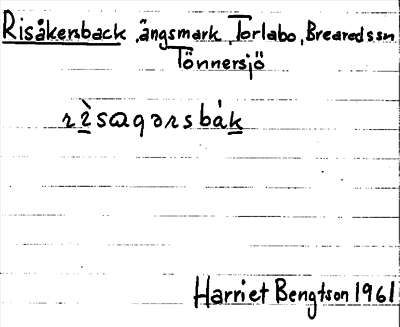 Risåkersback, ängsmark, Torlabo, Breareds sn
Tönnersjö
rı̀sɑgərsbåk
Harriet Bengtson 1961